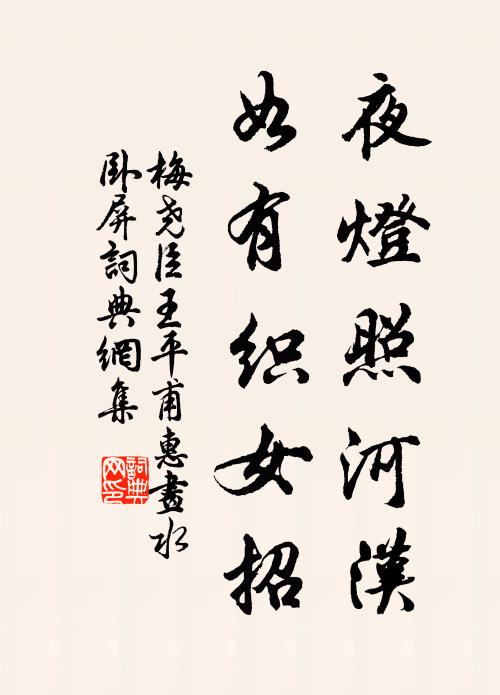 夜燈照河漢
如有织女招
梅尧臣王平甫惠畫水
卧屏詞典網集
詞典网印